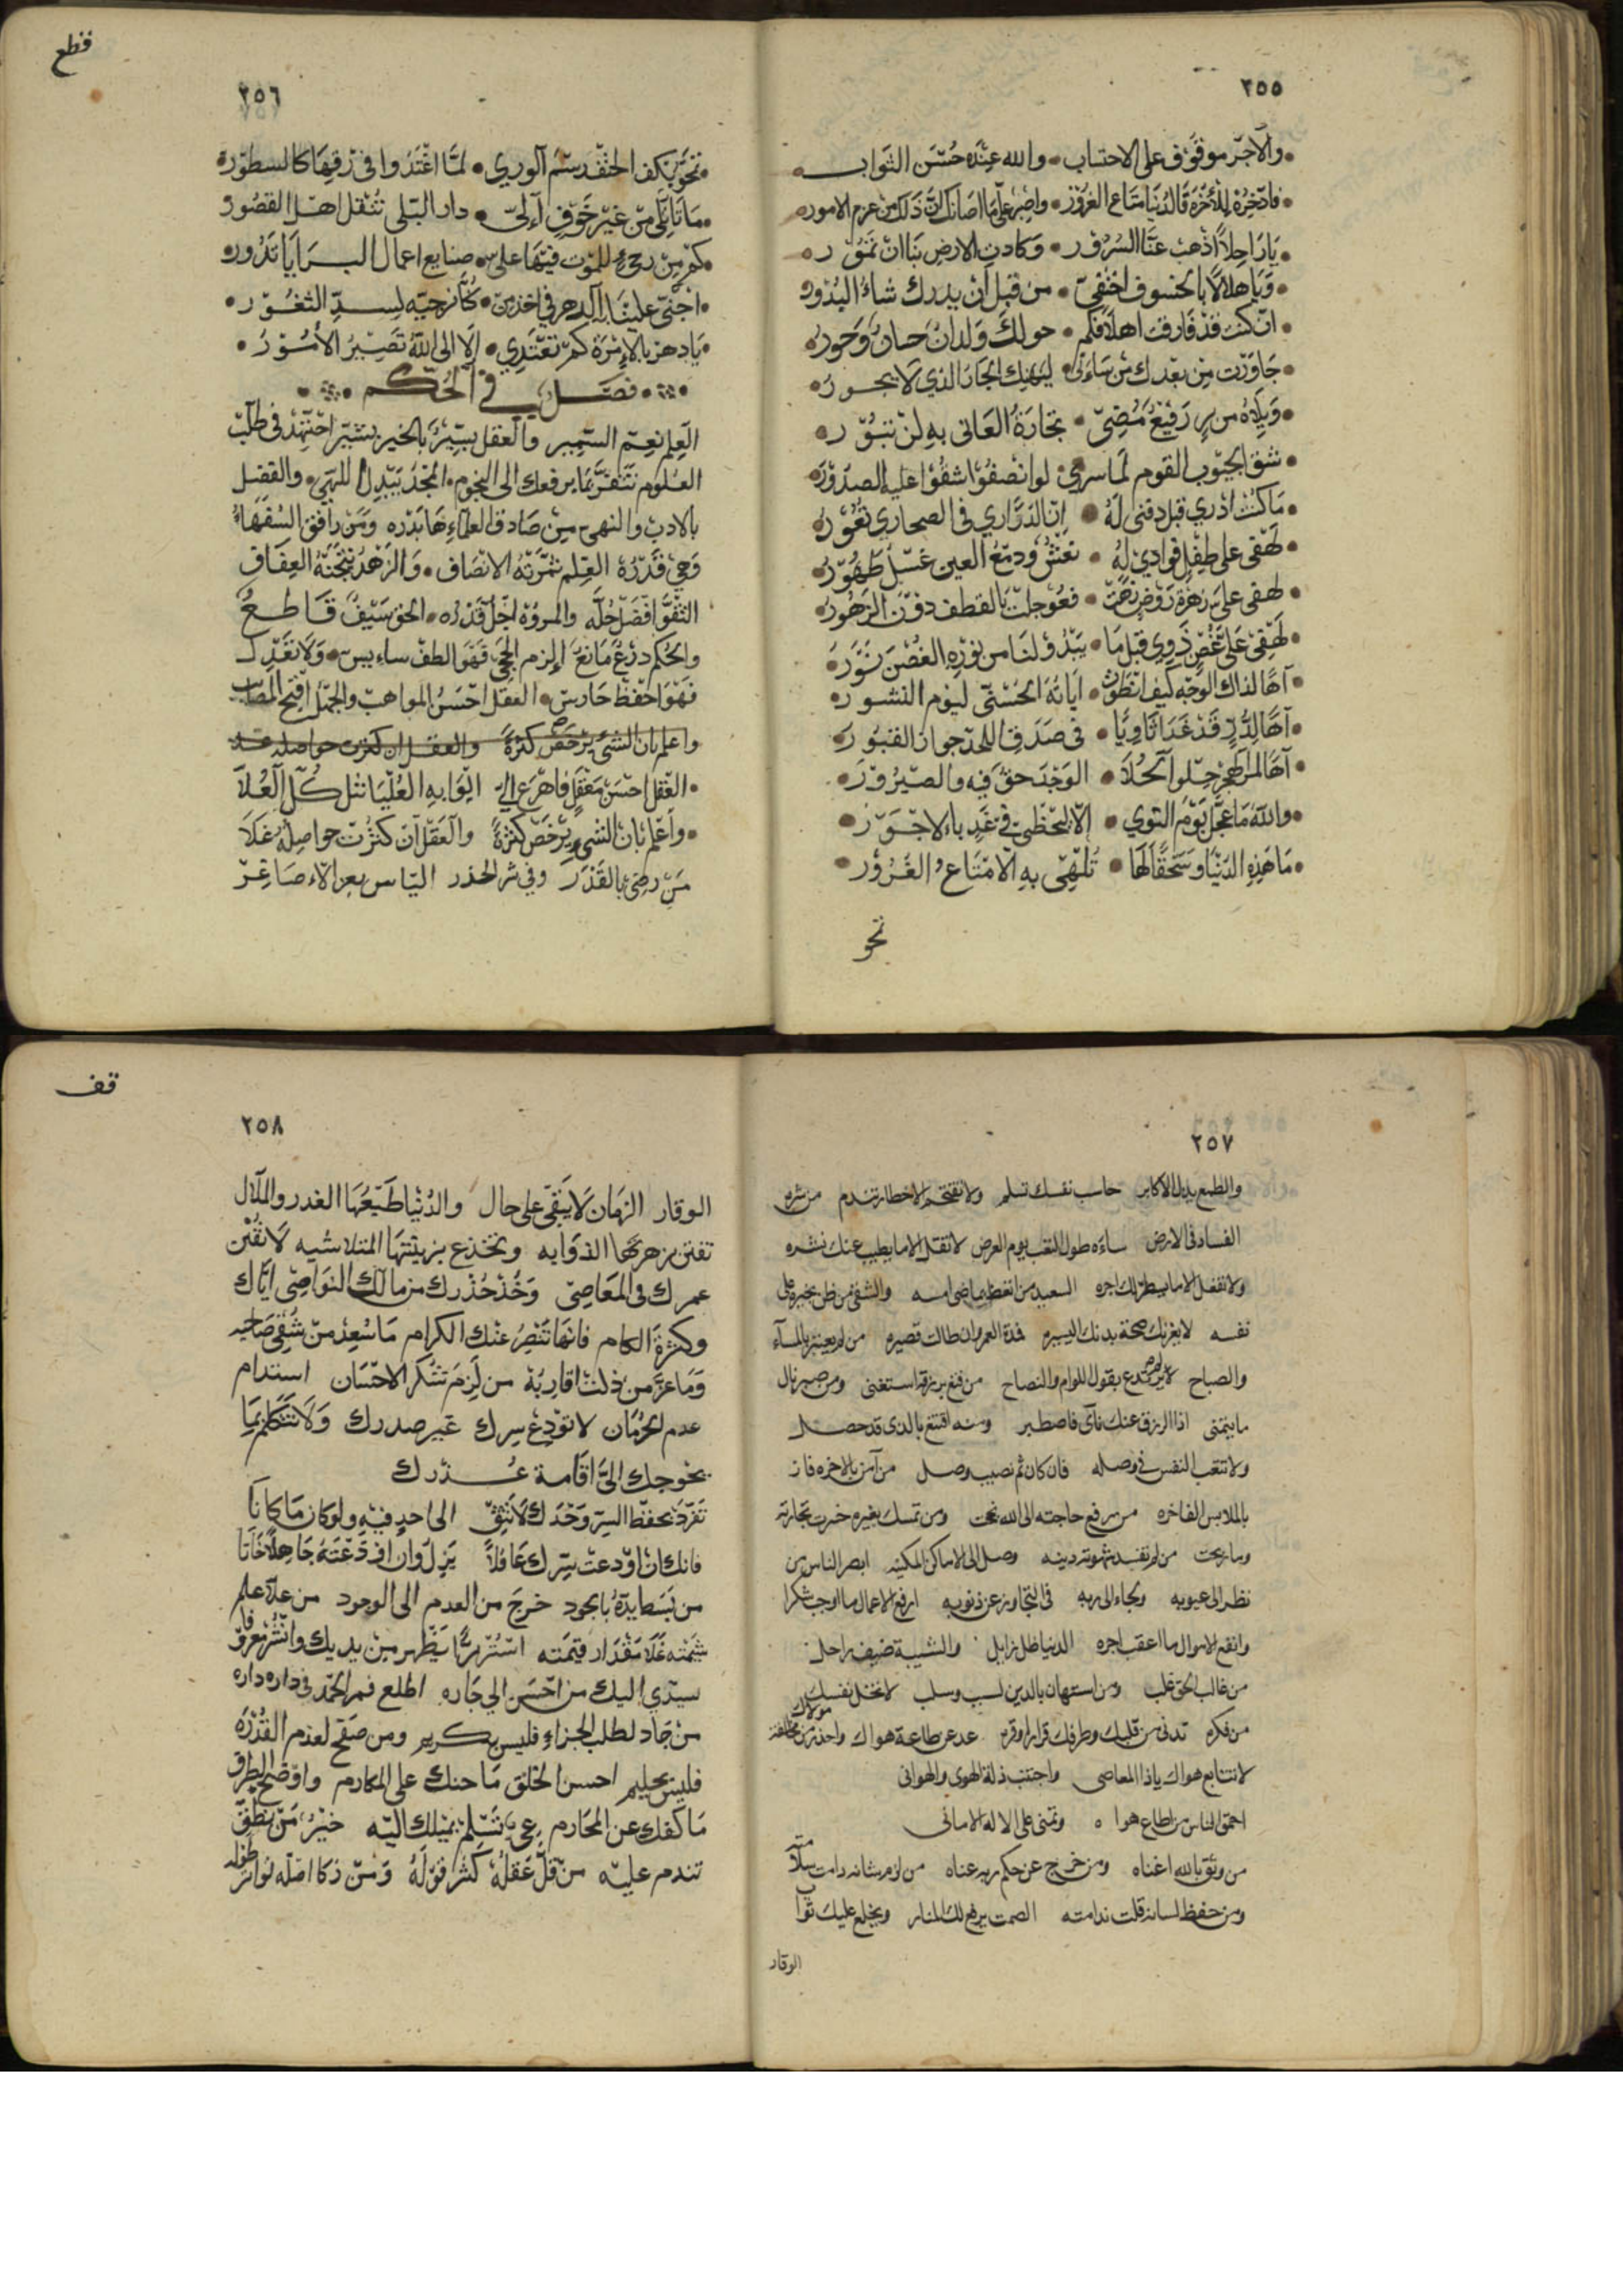 ٢٥٥
والاجر موقوف على الاحتساب • والله عنده حسن الثواب
فادخره للأخرة فالدنيا متاع الغرور • واصبر على ما اصابك ان ذلك من عزم الامور
يا راحلاً اذهب عنا السرور • وكادت الارض بنا ان تمور
ويا هلالاً بالخسوف اختفى • من قبل ان يدرك شاء البدور
ان كنت قد فارقت اهلاً فكم • حولك ولدان حسان وحور
جاورت من بعدك من ساءنى ليهنك الجار الذي لا يجور
ويلاه من رفيع مضى • تجارة العانى به لن تبور
شق الجيوب القوم لما سرى • لو انصفوا شقوا عليه الصدور
ما كنت ادري قبل دفنى له • ان الدراري فى الصحاري تغور
لهفى على طفل فوادي له • نعش ودمع العين غسل طهور
لهفى على زهرة روض • فعوجلت بالقطف دون الزهور
لهفى على غصن ذوي قبل ما • يبدو لنا من نوره الغصن نور
آهاً لذاك الوجه كيف انطوت • اياته الحسنى ليوم النشور
آهاً لدر قد غدا ثاويا • فى صدف اللحد جوار القبور
آهاً لمر الهجر حلوا الحلا • الوجد حق فيه والصبر زور
والله ما عجل يوم النوي • الا ليحظى فى غد بالاجور
ما هذه الدنيا وسحقاً لها • تلهى به الا متاع الغرور
نحو
قطع
٢٥٦
نحو بكف الحتف رسم الوري • لما اغتدوا فى رقها كالسطور
ما نابلى من غير خوف • دار البلى تنقل اهل القصور
كم من رحى للموت فيها على • صنايع اعمال البرايا تدور
اخنى علينا الدهر فى اخذ من • كنا نرجيه لسد الثغور
يا دهر بالامرة كم تعتدي • الا الى الله تصير الأمور
فصل فى الحكم
العلم نعم السمير والعقل بشير بالخير يشير اجتهد فى طلب
العلوم تتفز بما يرفعك الى النجوم • المجد يبدل اللهى • والفضل
بالادب والنهى من صادق العلماء بدره ومن رافق السفهاء
وهى قدره العلم ثمرته الانصاف • والزهد نتيجته العفاف
التقوا افضل حله والمروة اجل قدره • الحق سيف قاطع
والحكم درع مانع إلزم الحجى فهو الطف سايس • ولا تعد لـ
فهو احفظ حارس • العقل احسن المواهب والجهل اقبح المصايب
واعلم بان الشئ يرخص كثرة والعقل ان كثرت حواصله غـ
العقل احسن معقل فاهرع الى ابوابه العليا تنل كل العلا
واعلم بان الشئ يرخص كثرة والعقل ان كثرت حواصله غلا
من رضى بالقدر وفى شر الحذر الياس يعز الاء صاغر
قف
٢٥٧
والطمع يذل الاكابر حاسب نفسك تسلم ولا تقتحم الاخطار تندم من شره
الفساد فى الارض ساءه طول التعب يوم العرض لا تقل الا ما يطيب عنك نشره
ولا تفعل الا ما يسطر لك اجره السعيد من اتعظ بماضى امسه والشقى من ظن بخيره على
نفسه لا يغرنك صحة بدنك اليسيره فمدة العمر وان طالت قصيره من لم يعتبر بالمسآء
والصباح لم يرتدع بقول اللوام والنصاح من قنع برزقه استغنى ومن صبر نال
ما يتمنى اذا الرزق عنك نآى فاصطبر ومنه اقتنع بالذى قد حصل
ولا تتعب النفس فى وصله فان كان ثم نصيب وصل من آمن بالاخره فاز
بالملابس الفاخره من رفع حاجته الى الله نجت ومن تمسك بغيره خسرت تجارته
وما ربحت من لم تفسد شهوته دينه وصل الى الاماكن المكينه ابصر الناس من
نظر الى عيوبه ولجاء الى ربه فى التجاوز عن ذنوبه ارفع الاعمال ما اوجب شكرا
وانفع الاموال ما اعقب اجره الدنيا ظل زايل والشيبة ضيف راحل
من غالب الحق غلب ومن استهان بالدين لسب وسلب لا تخل نفسك
من فكره تدنى من قلبك وطرفك قرارا وقره عد عن طاعة هواك واحذر من مخالفة
مولاك
لا تتابع هواك يا ذا المعاصى واجتنب ذلة الهوى والهوانى
احمق الناس من اطاع هواه وتمنى على الاله الامانى
من وثق بالله اغناه ومن خرج عن حكم ربه عناه من لزم شانه دامت سلامته
ومن حفظ لسانه قلت ندامته الصمت يرفع لك المنار ويخلع عليك ثوا
الوقار
٢٥٨
الوقار الزمان لا يبقى على حال والدنيا طبيعتها الغدر والملال
تفتن بزهرتها الذوايه وتخدع بزينتها المتلاشيه لا تفن
عمرك فى المعاصى وخذ حذرك من مالك النواصى اياك
وكثرة الكلام فانها تنفر عنك الكرام ما سعد من شقى صاحبه
وما عز من ذلت اقاربه من لزم شكر الاحسان استدام
عدم الحرمان لا تودع سرك غير صدرك ولا تتكلم بما
يحوجك الى اقامة عذرك
تفرد بحفظ السر وحدك لا تثق الى احد فيه ولو كان ما كانا
فانك ان اودعت سرك عاقلاً يزل وان اودعته جاهلاً خانا
من بسط يده بالجود خرج من العدم الى الوجود من علا علم
شيمته غلا مقدار قيمته استر برا يظهر من يديك وانشر معروفا
سيدي اليك من احسن الى جاره اطلع قمر الحمد فى داره داره
من جاد لطلب الجزاء فليس بكريم ومن صفح لعدم القدره
فليس بحليم احسن الخلق ما حثك على المكارم واوضح الطرق
ما كفك عن المحارم عى تسلم بميلك اليه خير من نطق
تندم عليه من قل عقله كثر قوله ومن زكا اصله تواتر طوله